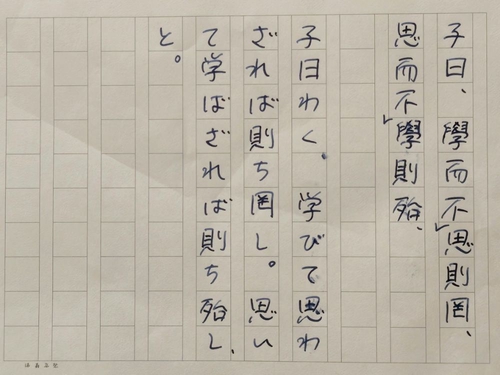 子曰、學而不思則罔、
思而不學則殆、
子曰わく、学びて思わ
ざれば則ち罔し。思い
て学ばざれば則ち殆し、
と。